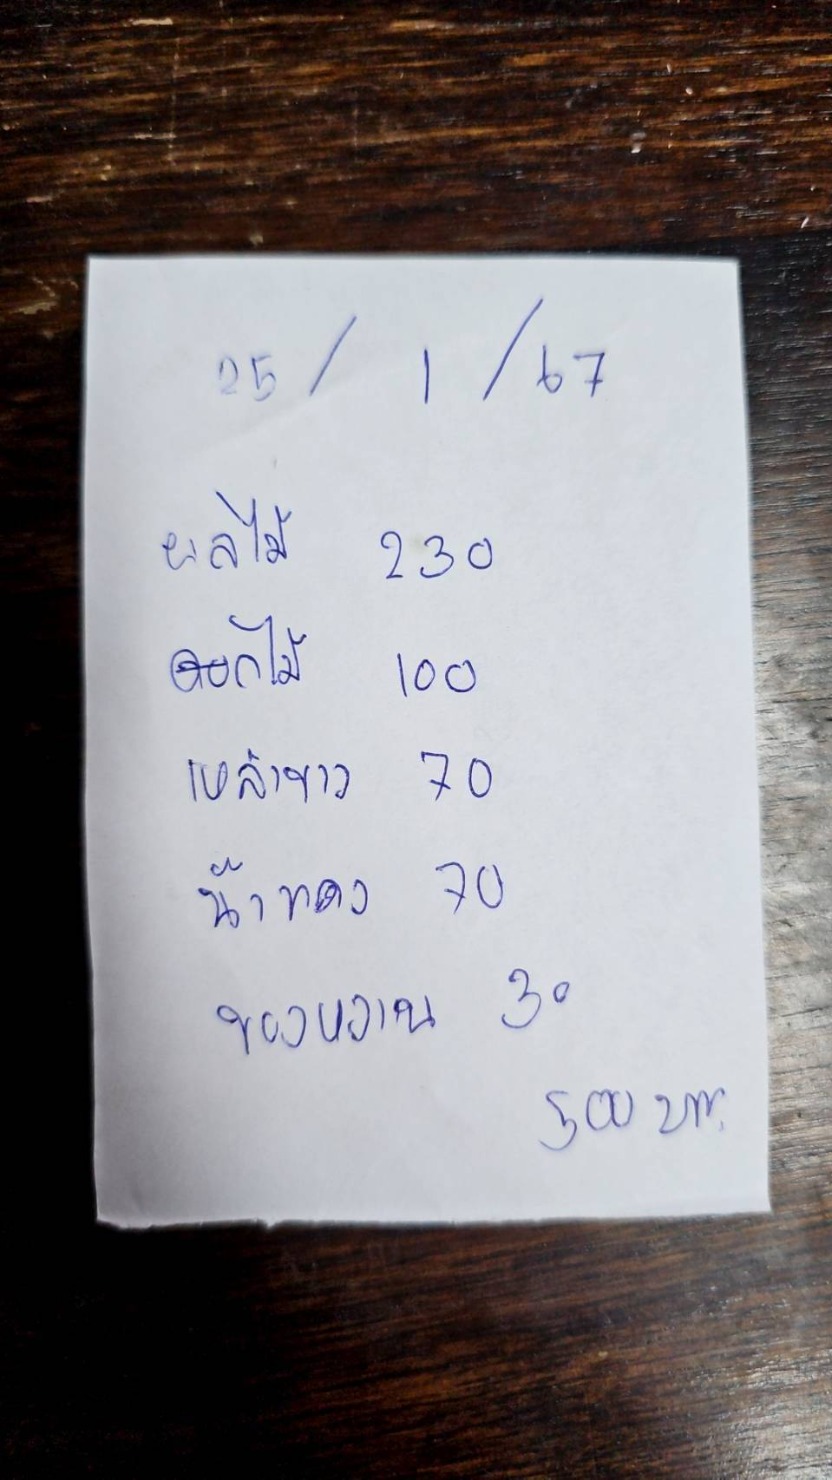 25 / 1 / 67
ผลไม้ 230
ดอกไม้ 100
เหล้าขาว 70
น้ำแดง 70
ของหวาน 30
500 บาท